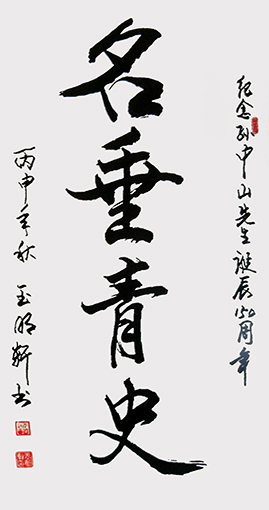 纪念孙中山先生诞辰150周年
名垂青史
丙申年秋 玉明轩书